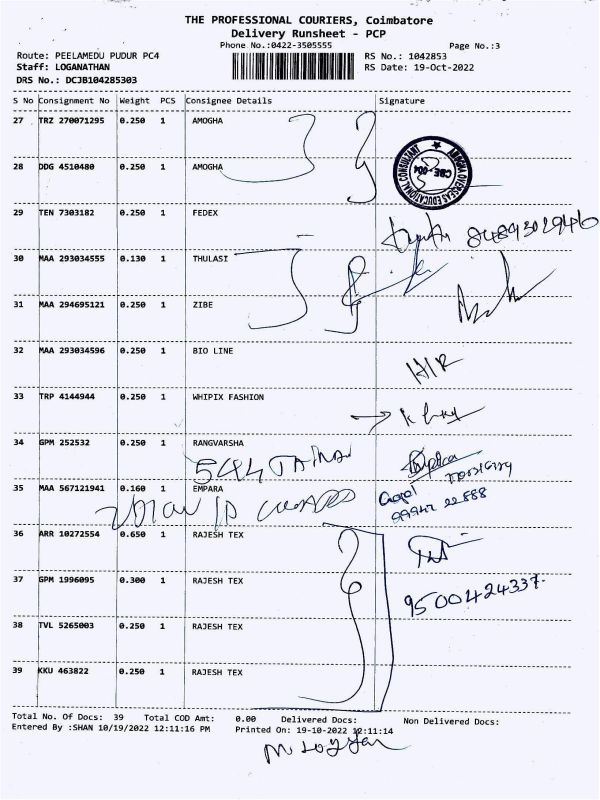 THE PROFESSIONAL COURIERS, Coimbatore
Delivery Runsheet - PCP
Phone No.:0422-3505555 Page No.:3
Route: PEELAMEDU PUDUR PC4 RS No.: 1042853
Staff: LOGANATHAN RS Date: 19-Oct-2022
DRS No.: DCJB104285303
S No Consignment No Weight PCS Consignee Details Signature
27 TRZ 270071295 0.250 1 AMOGHA
28 DDG 4510480 0.250 1 AMOGHA
AMOGHA OVERSEAS EDUCATIONAL CONSULTANT
CBE-004
29 TEN 7303182 0.250 1 FEDEX
8489302946
30 MAA 293034555 0.130 1 THULASI
31 MAA 294695121 0.250 1 ZIBE
32 MAA 293034596 0.250 1 BIO LINE
33 TRP 4144944 0.250 1 WHIPIX FASHION
34 GPM 252532 0.250 1 RANGVARSHA
35 MAA 567121941 0.160 1 EMPARA
Gopal
99942 22888
36 ARR 10272554 0.650 1 RAJESH TEX
37 GPM 1996095 0.300 1 RAJESH TEX
9500424337.
38 TVL 5265003 0.250 1 RAJESH TEX
39 KKU 463822 0.250 1 RAJESH TEX
Total No. Of Docs: 39 Total COD Amt: 0.00 Delivered Docs: Non Delivered Docs:
Entered By :SHAN 10/19/2022 12:11:16 PM Printed On: 19-10-2022 12:11:14